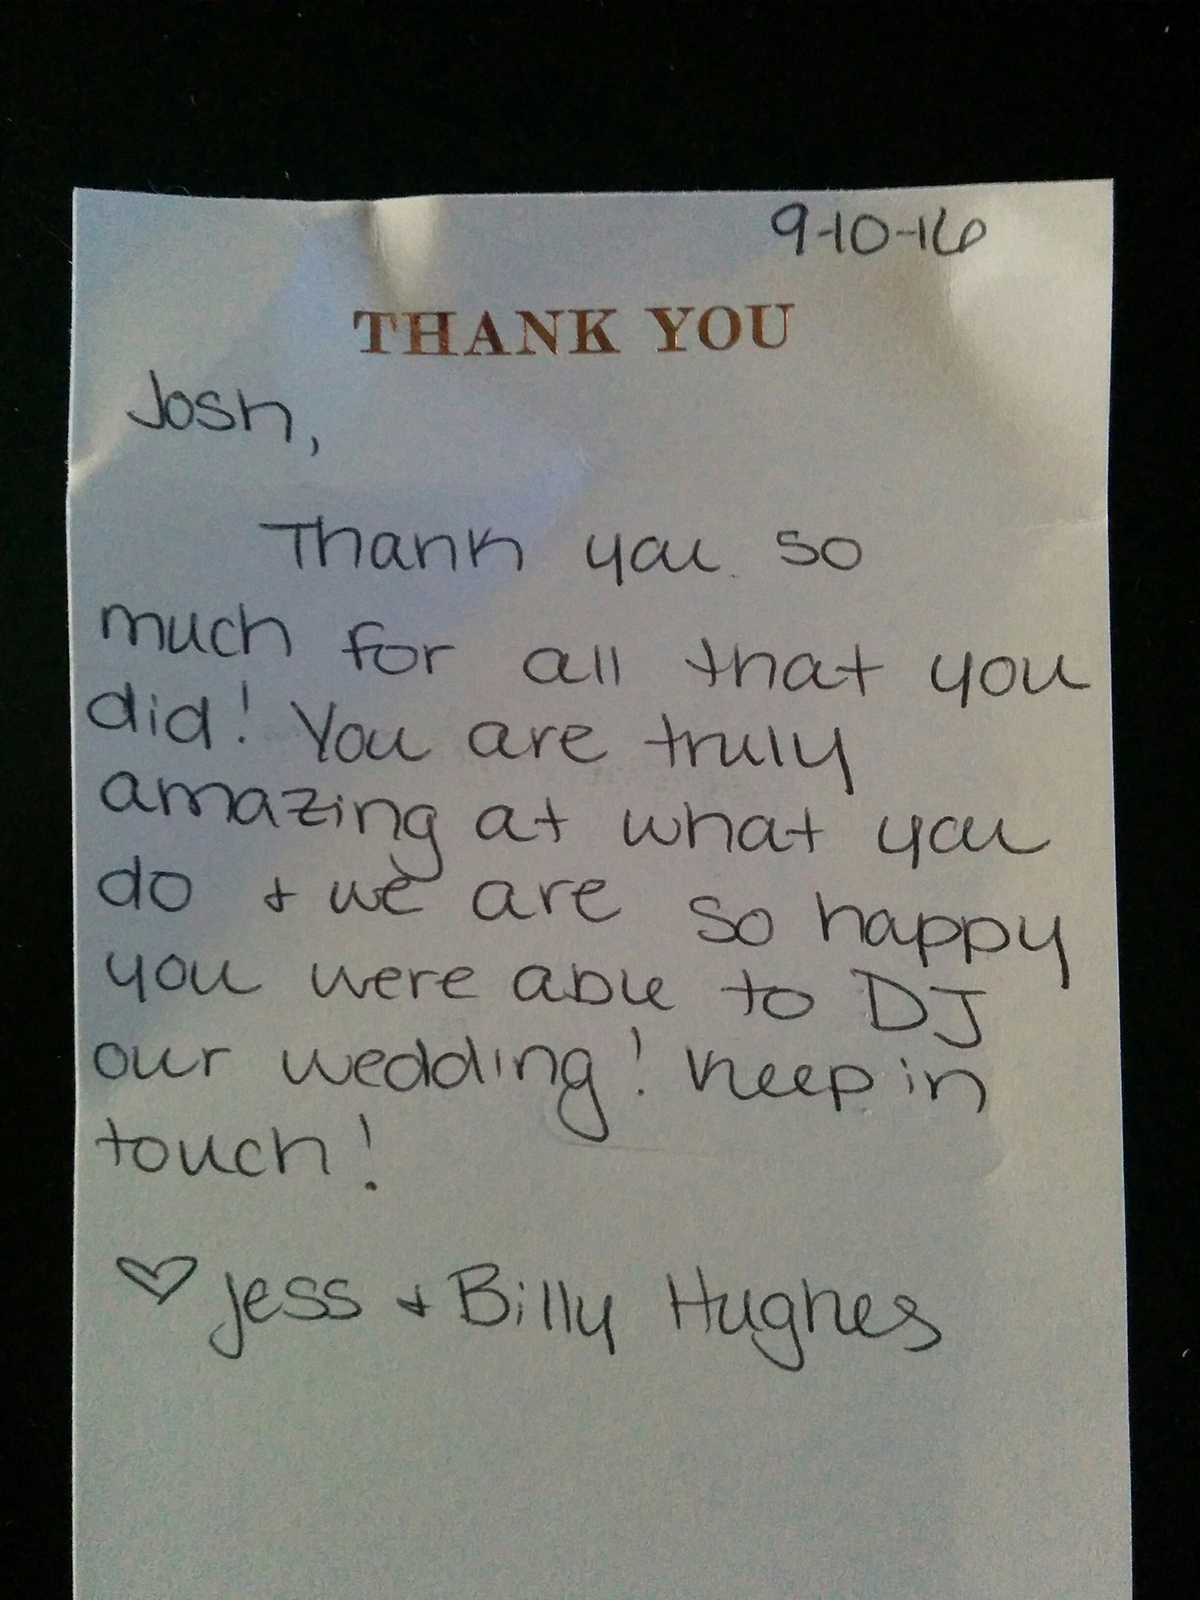 9-10-16
THANK YOU
Josh,
Thank you so
much for all that you
did! You are truly
amazing at what you
do + we are so happy
you were able to DJ
our wedding! Keep in
touch!
♡ Jess + Billy Hughes